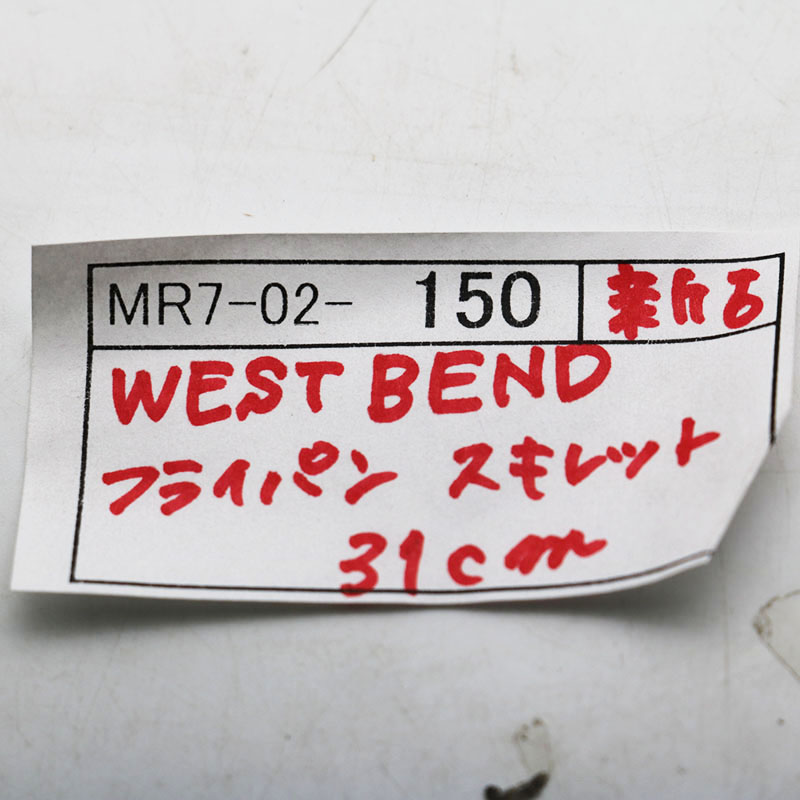 MR7-02- 150
WEST BEND
フライパン スキレット
31cm